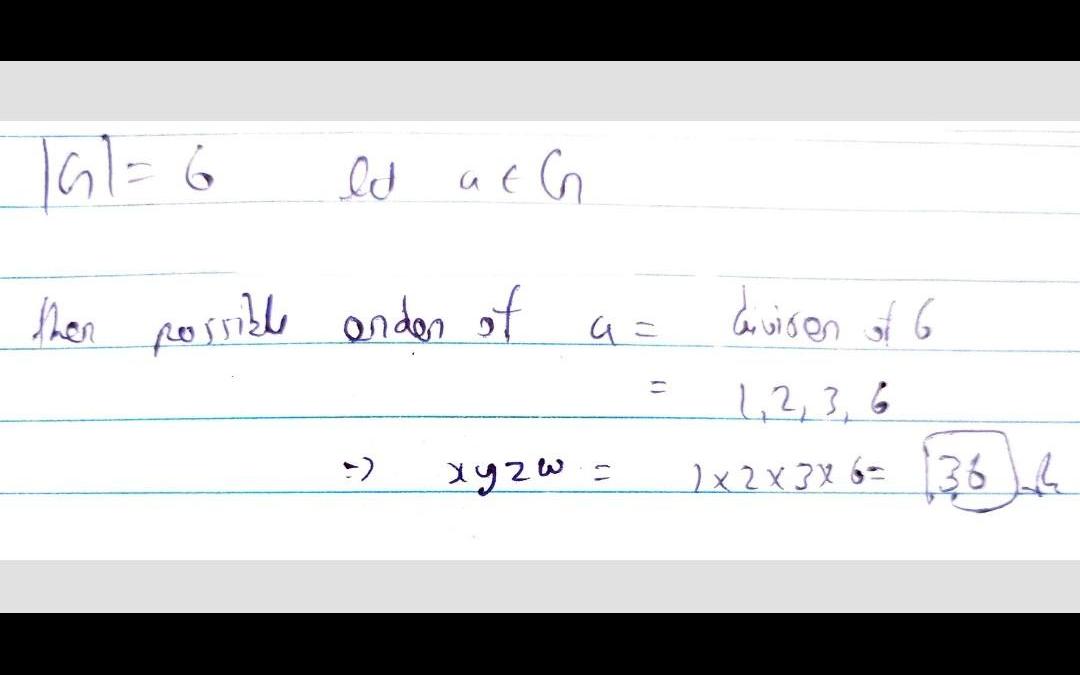 |G| = 6 let a ∈ G
then possible order of a = divisor of 6
= 1, 2, 3, 6
=> xyzw = 1 x 2 x 3 x 6 = 36